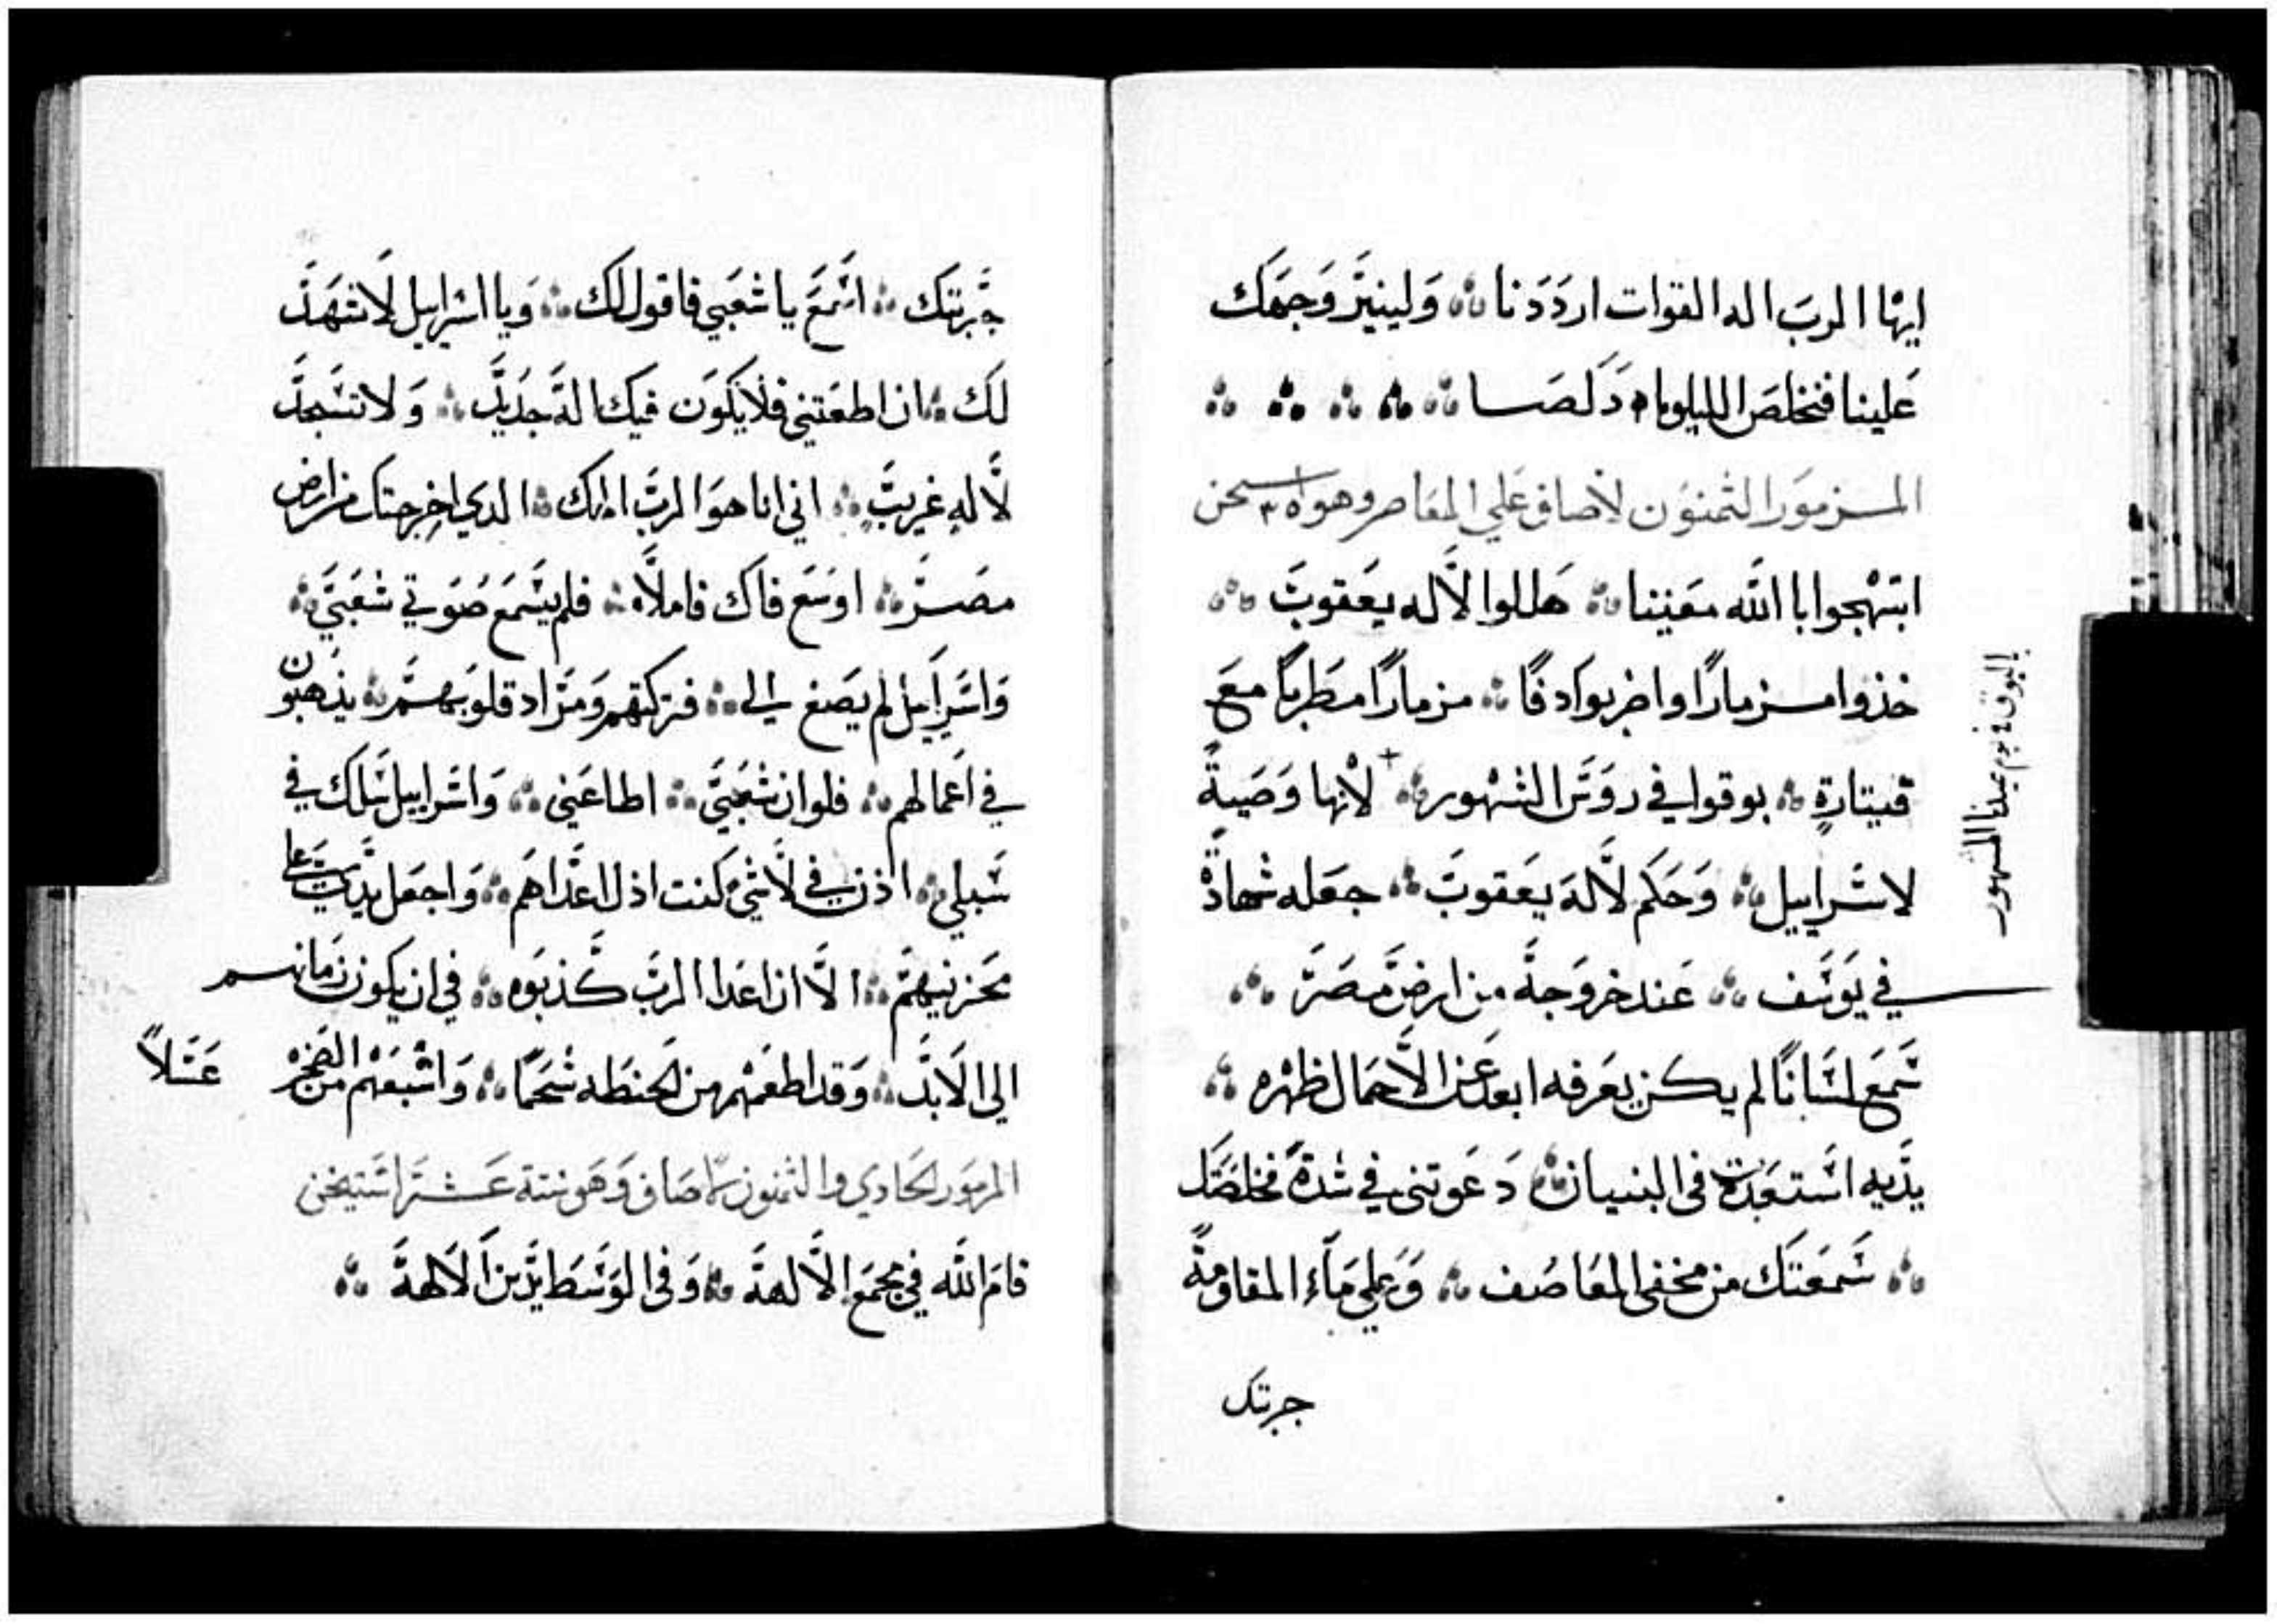 ايها الرب اله القوات ارددنا ولينير وجهك
علينا فنخلص الليلويا دكصا
المزمور الثمنون لاصاف علي المعاصر وهو
ابتهجوا با الله معيننا هللوا لاله يعقوب
خذوا مزمارًا واضربوا دفًا مزمارًا مطربًا مع
قيتارةٍ بوقوا في روس الشهور لانها وصيةً
البوق في يوم عيدنا المشهور
لاسراييل وحكم لاله يعقوب جعله شهادةً
في يوسف عند خروجه من ارض مصر
سمع لسانًا لم يكن يعرفه ابعد عن الاحمال ظهره
يديه استعبدت في البنيان دعوتني في شدةً فخلصتك
سمعتك من مخفي المعاصف وعلي ماء المقاومة
جربتك
جربتك اسمع يا شعبي فاقول لك ويا اسراييل لاشهد
لك ان اطعتني فلا يكون فيك اله جديد ولا تسجد
لاله غريب اني انا هو الرب الهك الدي اخرجتك من ارض
مصر اوسع فاك فاملاه فلم يسمع صوتي شعبي
واسراييل لم يصغ الي فتركتهم ومراد قلوبهم يذهبون
في اعمالهم فلو ان شعبي اطاعني واسراييل سلك في
سبلي اذن في لاشي كنت اذل اعداهم واجعل يدي علي
محزنيهم الا ان اعدا الرب كذبوه في ان يكون زمانهم
الي الابد وقد اطعمهم من الحنطه شحمًا واشبعهم من الصخره عسلاً
المزمور الحادي والثمنون لاصاف وهو ستة عشر استيخن
قام الله في مجمع الالهة وفي الوسط يدين الالهة